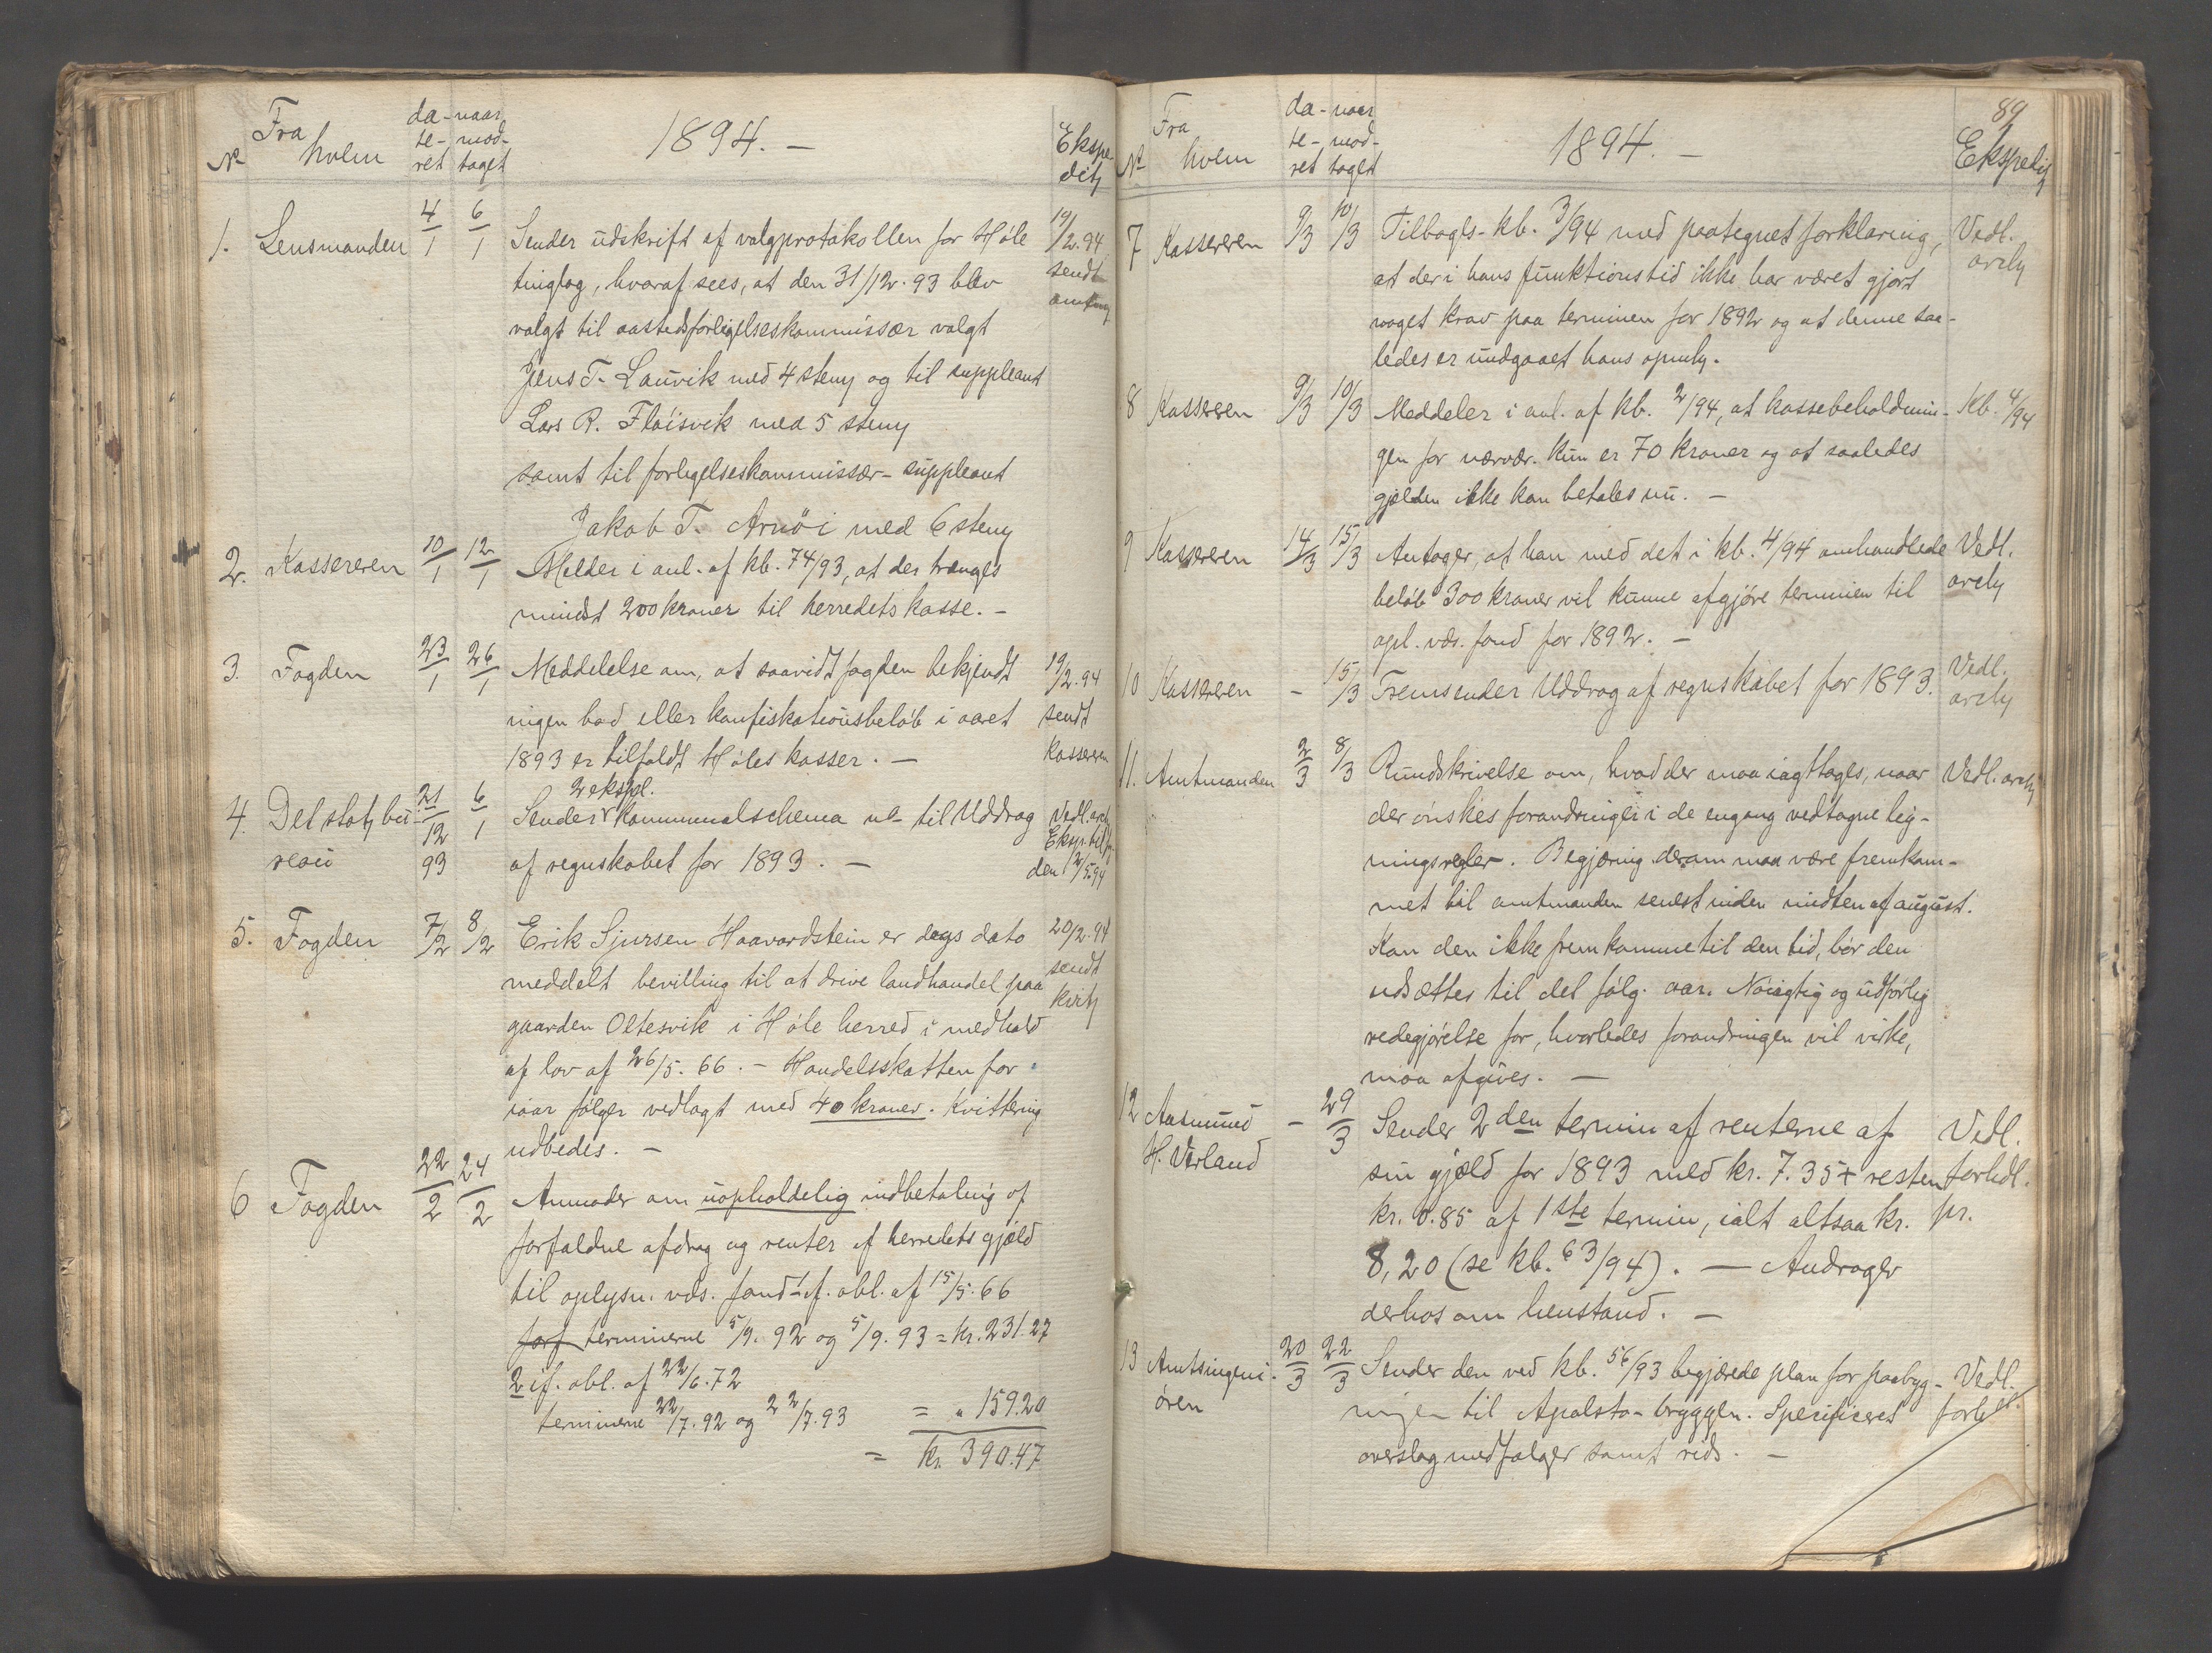 Nº Fra hvem da-te-ret naar mod-taget 1894. – Ekspe-dit
1. Lensmanden 4/1 6/1 Sender udskrift af valgprotokollen for Høle 19/2.94
tinglag, hvoraf sees, at den 31/12. 93 blev sendt
valgt til aastedsforligelseskommissær valgt amtm
Jens T. Lauvik med 4 stem og til suppleant
Lars R. Fløisvik med 5 stem
samt til forligelseskommissær-suppleant
Jakob T. Arnøi med 6 stem
2. Kassereren 10/1 12/1 Melder i anl. af kb. 74/93, at der trænges
mindst 200 kroner til herredets kasse. –
3. Fogden 23/1 26/1 Meddelelse om, at saavidt fogden bekjendt 19/2.94
ingen bod eller konfiskationsbeløb i aaret sendt
1893 er tilfaldt Høles kasser. – kasseren
2 ekspl.
4. Det stat. bü- 21/12 6/1 Sender kommunalschema til Uddrag Vedl.
reau 93 af regnskabet for 1893. – Eksp. den 12/5.94
5. Fogden 7/2 8/2 Erik Sjursen Haavardstein er dags dato 20/2.94
meddelt bevilling til at drive landhandel paa sendt
gaarden Oltesvik i Høle herred i medhold kvit
af lov af 26/5. 66. – Handelsskatten for
iaar følger vedlagt med 40 kroner. Kvittering
udbedes. –
6 Fogden 22/2 24/2 Anmoder om uopholdelig indbetaling af
forfaldne afdrag og renter af herredets gjæld
til oplysn. vds. fond 1 if. obl. af 15/5. 66
forf terminerne 5/9. 92 og 5/9. 93 = kr. 231.27
2 if. obl. af 22/6.72
terminerne 22/7.92 og 22/7.93 = " 159.20
= kr. 390.47
89
Nº Fra hvem da-te-ret naar mod-taget 1894. – Ekspedit
7 Kassereren 9/3 10/3 Tilbages. kb. 3/94 med paategnet forklaring, Vedl.
at der i hans funktionstid ikke har været gjort
noget krav paa terminen for 1892 og at denne saa-
ledes er undgaaet hans opm.
8 Kassereren 9/3 10/3 Meddeler i anl. af kb. 2/94, at kassebeholdnin- Kb. 4/94
gen for nærvær. kun er 70 kroner og at saaledes
gjælden ikke kan betales nu. –
9 Kassereren 14/3 15/3 Antager, at han med det i kb. 4/94 omhandlede Vedl.
beløb 300 kroner vil kunne afgjøre terminen til
opl. væs. fond for 1892. –
10 Kassereren – 15/3 Fremsender Uddrag af regnskabet for 1893. Vedl.
11. Amtmanden 2/3 8/3 Rundskrivelse om, hvad der maa iagttages, naar Vedl.
der ønskes forandringer i de engang vedtagne lig-
ningsregler. Begjæring derom maa være fremkom-
met til amtmanden senest inden midten af august.
Kan den ikke fremkomme til den tid, bør den
udsættes til det følg. aar. Nøiagtig og udførlig
redegjørelse for, hvorledes forandringen vil virke,
maa afgives. –
12 Aasmund – 29/3 Sender 2den termin af renterne af Vedl.
H. Verland sin gjæld for 1893 med kr. 7.35 + resten forhdl.
kr. 0.85 af 1ste termin, ialt altsaa kr. pr.
8,20 (se kb. 63/94). – Andrager
derhos om henstand. –
13 Amtsingeni- 20/3 22/3 Sender den ved kb. 56/93 begjærede plan for paabyg- Vedl.
øren ningen til Apalstø-bryggen. Specificeret
overslag medfølger samt rids. –